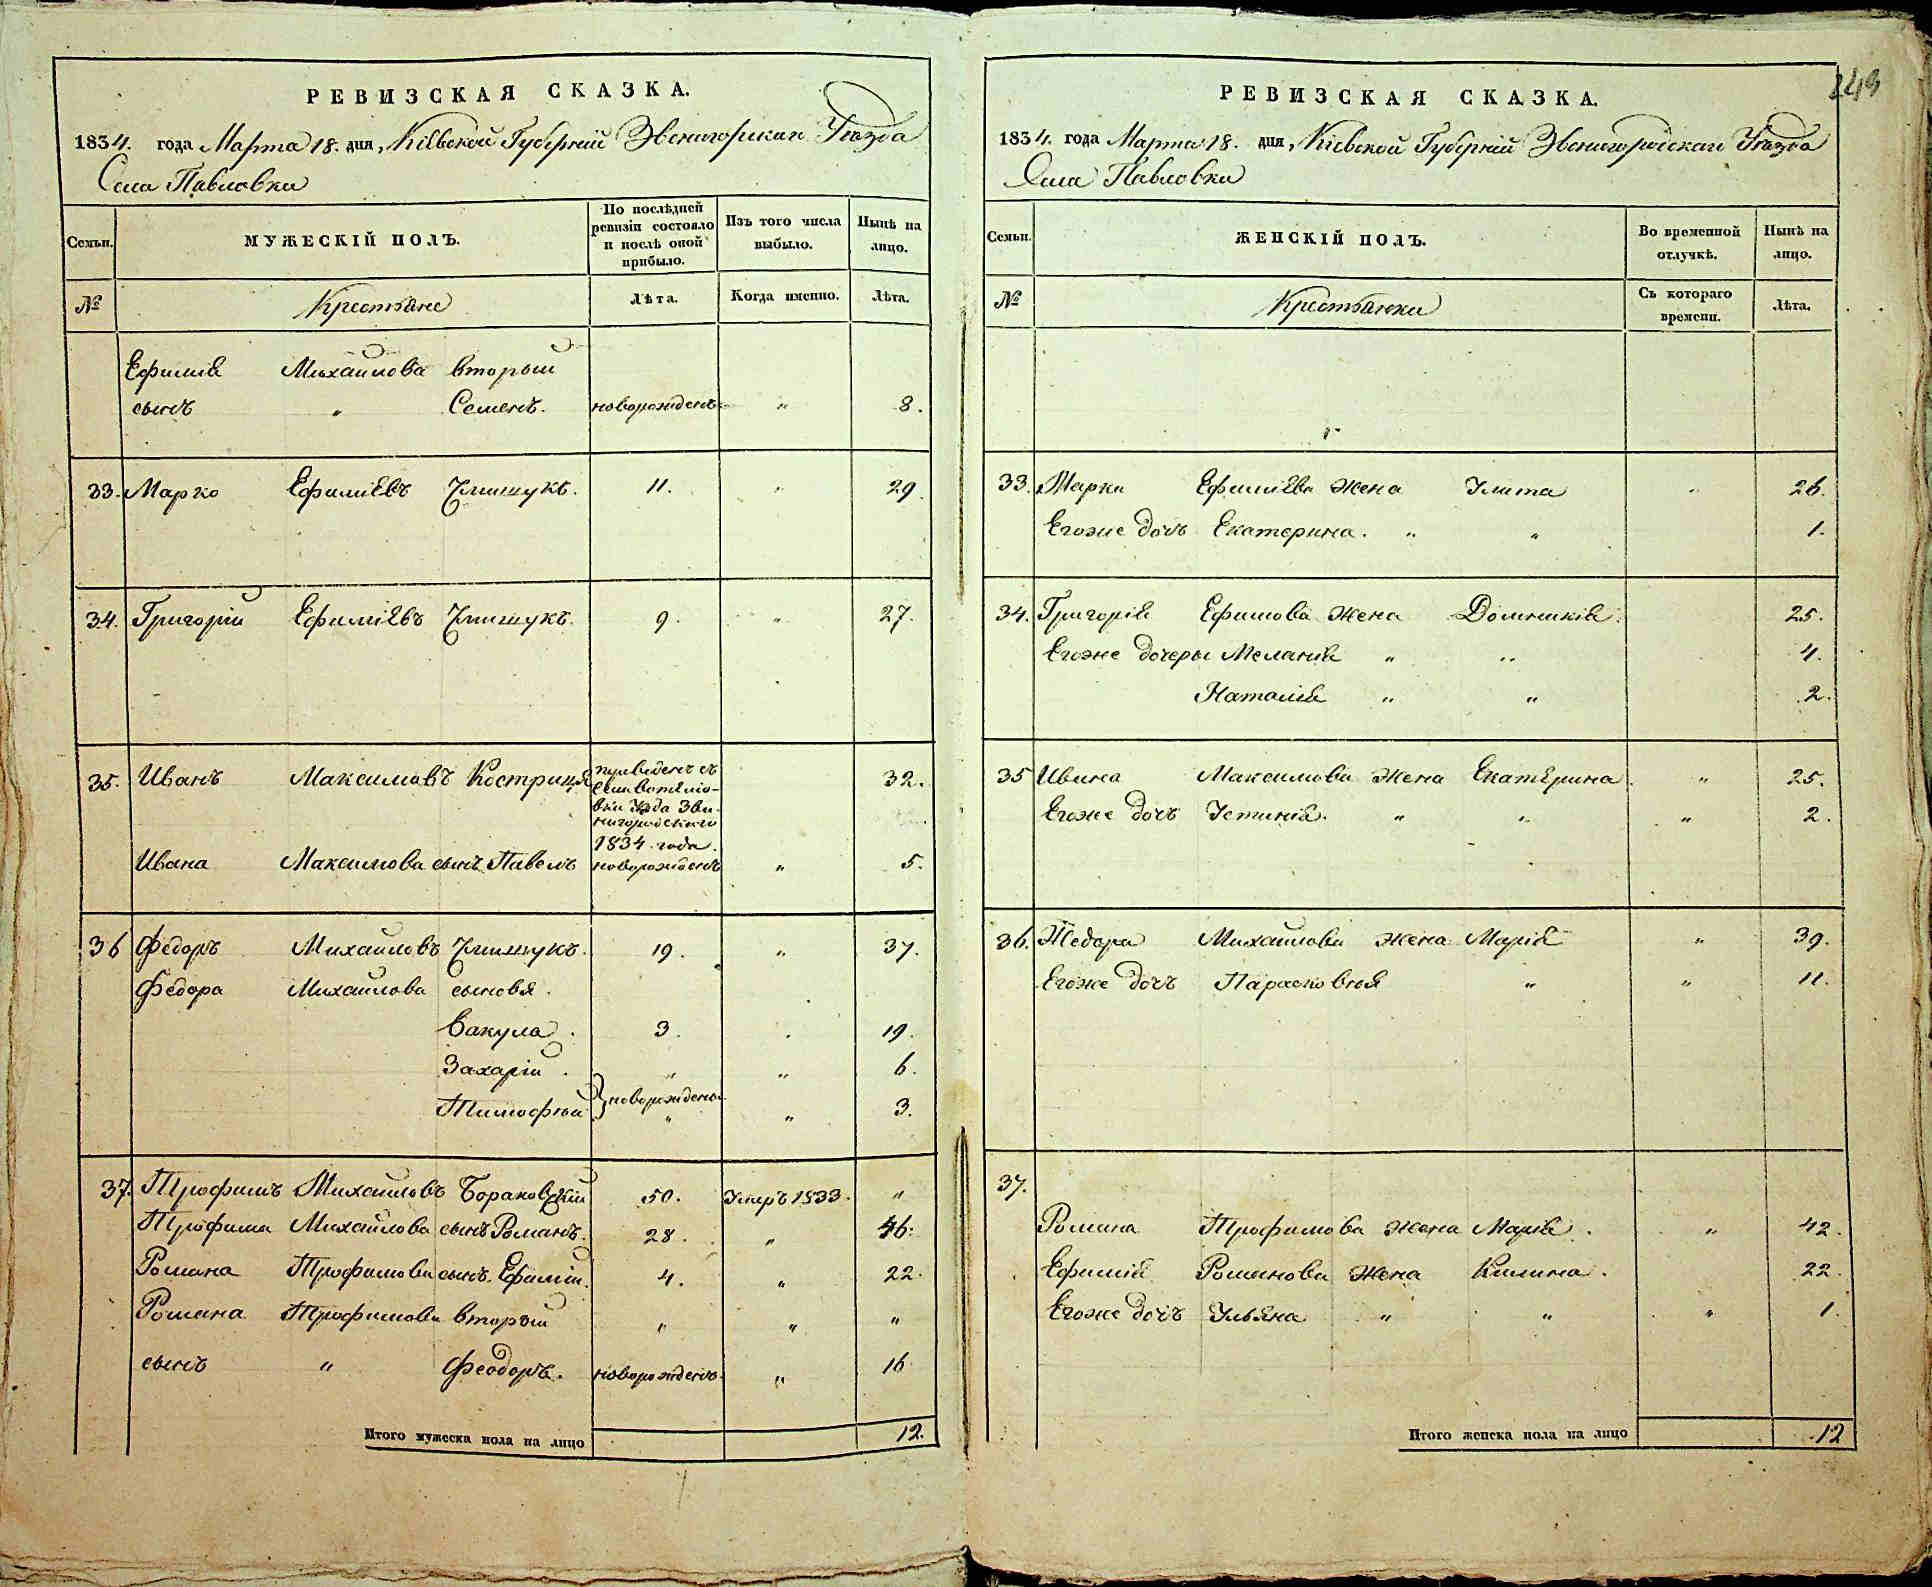 РЕВИЗСКАЯ СКАЗКА.
1834. года Марта 18. дня, Кіевской Губерніи Звенигорскаго Уѣзда
Села Павловки
Семьи.
МУЖЕСКІЙ ПОЛЪ.
По послѣдней
ревизіи состояло
и послѣ оной
прибыло.
Изъ того числа
выбыло.
Нынѣ на
лицо.
№
Крестьяне
Лѣта.
Когда именно.
Лѣта.
Ефимія Михайлова вторый
сынъ " Семенъ. новорожденъ " 8.
33. Марко Ефиміевъ 11. " 29.
34. Григорій Ефиміевъ 9. " 27.
35. Иванъ Максимовъ Кострица 32.
1834 года.
Ивана Максимова сынъ Павелъ новорожденъ " 5.
36 Федоръ Михайловъ 19. " 37.
Федора Михайлова сыновья.
Вакула. 3. 19.
Захарій. " " 6.
новорождены
Тимофей " " 3.
37. Трофимъ Михайловъ Бораковскій 50. Умеръ 1833. "
Трофима Михайлова сынъ Романъ. 28. " 46.
Романа Трофимова сынъ Ефимій. 4. " 22.
Романа Трофимова вторый " " "
сынъ " Феодоръ. новорожденъ. " 16
Итого мужеска пола на лицо 12.
249
РЕВИЗСКАЯ СКАЗКА.
1834. года Марта 18. дня, Кіевской Губерніи Звенигородскаго Уѣзда
Села Павловки
Семьи.
ЖЕНСКІЙ ПОЛЪ.
Во временной
отлучкѣ.
Нынѣ на
лицо.
№
Крестьянки
Съ котораго
времени.
Лѣта.
33. Марка Ефиміева жена Улита " 26.
Егоже дочь Екатерина. " " 1.
34. Григорія Ефимова жена Домникія. 25.
Егоже дочеры Меланія " " 4.
Наталія " " 2.
35 Ивана Максимова жена Екатерина. " 25.
Егоже дочь Устинія. " " " 2.
36. Федора Михайлова жена Марія " 39.
Егоже дочь Парасковья " " 11.
37.
Романа Трофимова жена Марія. " 42.
Ефимія Романова жена Килина. 22.
Егоже дочь Ульяна " " " 1.
Итого женска пола на лицо 12